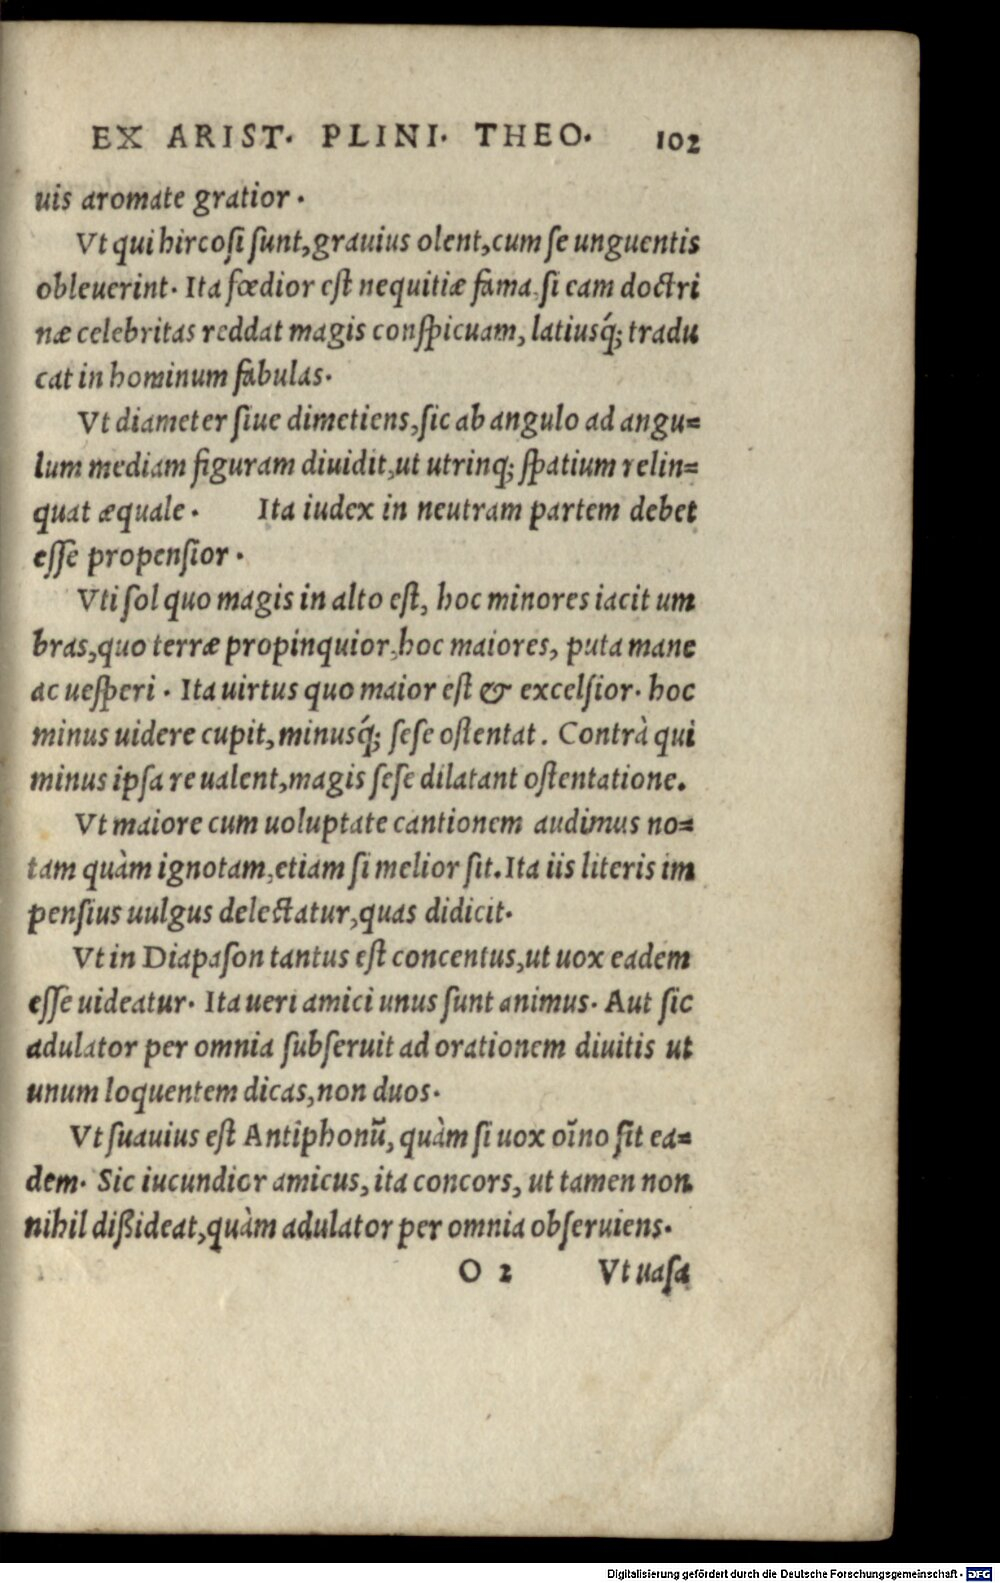 EX ARIST. PLINI. THEO. 102
uis aromate gratior.
Vt qui hircosi sunt, grauius olent, cum se unguentis
obleuerint. Ita fœdior est nequitiæ fama, si eam doctri
næ celebritas reddat magis conspicuam, latiusq́; tradu
cat in hominum fabulas.
Vt diameter siue dimetiens, sic ab angulo ad angu=
lum mediam figuram diuidit, ut utrinq; spatium relin=
quat æquale. Ita iudex in neutram partem debet
esse propensior.
Vti sol quo magis in alto est, hoc minores iacit um
bras, quo terræ propinquior, hoc maiores, puta mane
ac uesperi. Ita uirtus quo maior est & excelsior. hoc
minus uidere cupit, minusq́; sese ostentat. Contrà qui
minus ipsa re ualent, magis sese dilatant ostentatione.
Vt maiore cum uoluptate cantionem audimus no=
tam quàm ignotam, etiam si melior sit. Ita iis literis im
pensius uulgus delectatur, quas didicit.
Vt in Diapason tantus est concentus, ut uox eadem
esse uideatur. Ita ueri amici unus sunt animus. Aut sic
adulator per omnia subseruit ad orationem diuitis ut
unum loquentem dicas, non duos.
Vt suauius est Antiphonũ, quàm si uox oĩno sit ea=
dem. Sic iucundior amicus, ita concors, ut tamen non
nihil dißideat, quàm adulator per omnia obseruiens.
O 2 Vt uasa
Digitalisierung gefördert durch die Deutsche Forschungsgemeinschaft - DFG